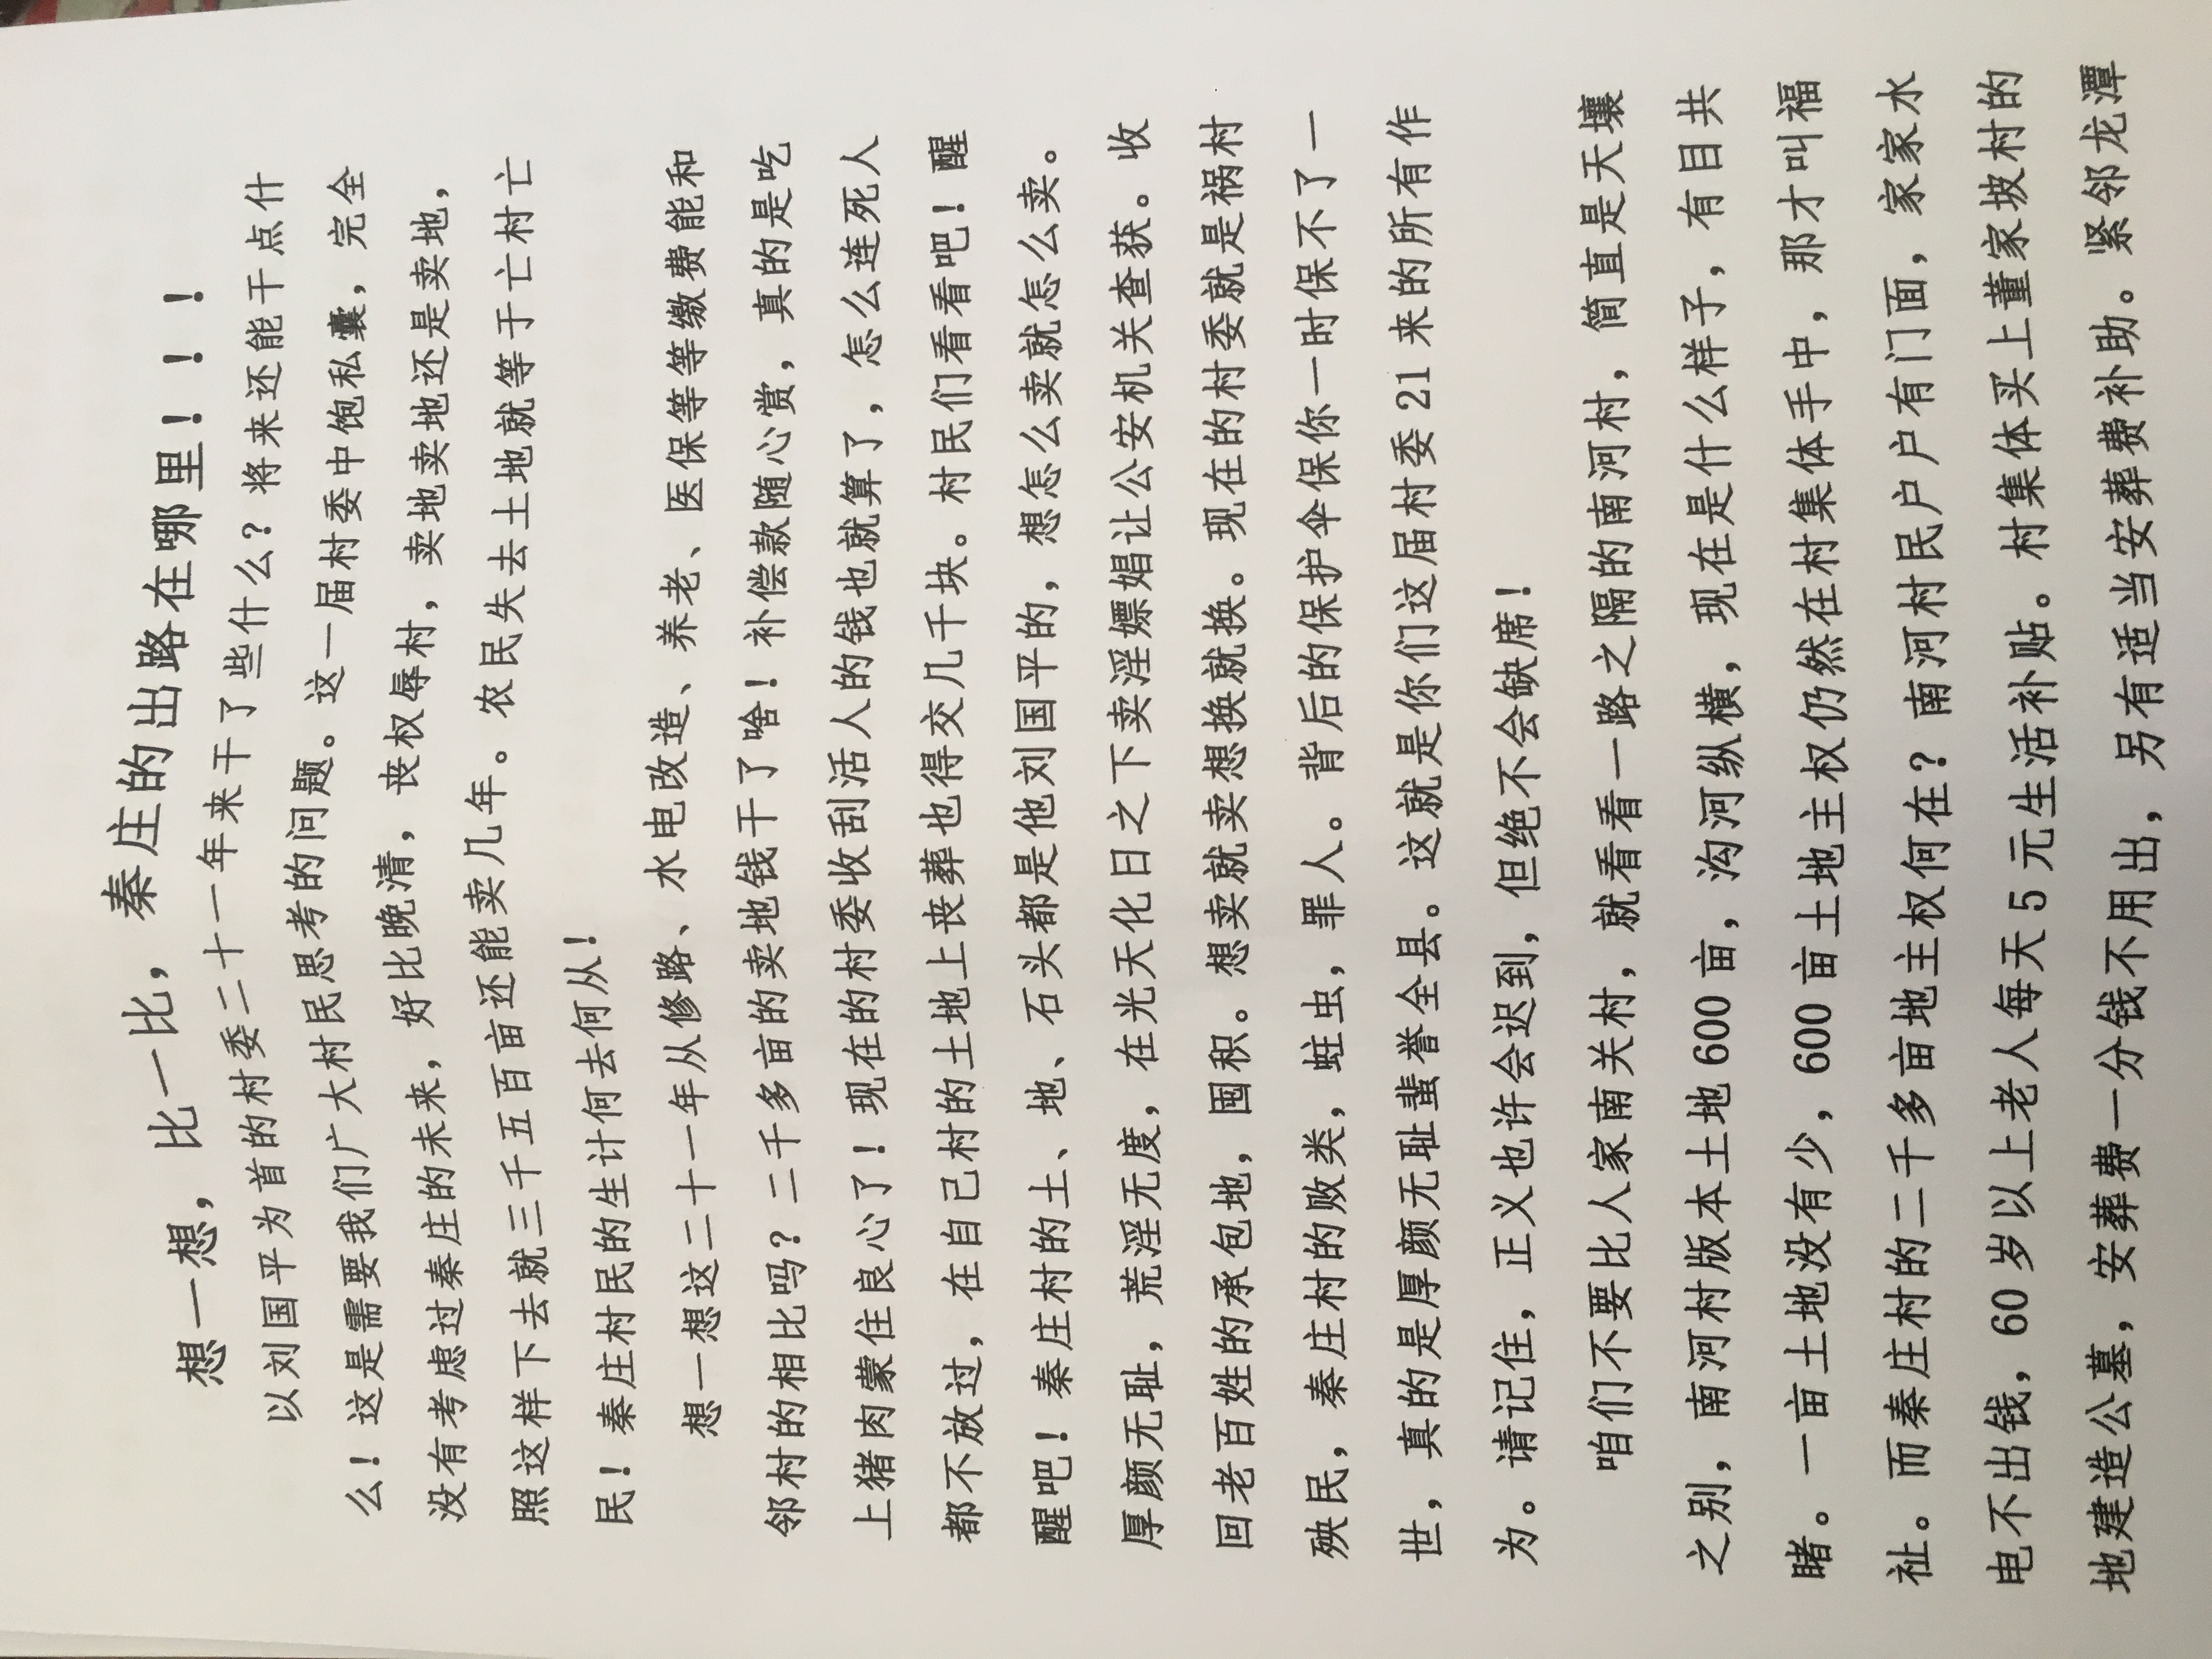 想一想，比一比，秦庄的出路在哪里！！！！
以刘国平为首的村委二十一年来干了些什么？将来还能干点什
么！这是需要我们广大村民思考的问题。这一届村委中饱私囊，完全
没有考虑过秦庄的未来，好比晚清，丧权辱村，卖地卖地还是卖地，
照这样下去就三千五百亩还能卖几年。农民失去土地就等于亡村亡
民！秦庄村民的生计何去何从！
想一想这二十一年从修路、水电改造、养老、医保等等缴费能和
邻村的相比吗？二千多亩的卖地钱干了啥！补偿款随心赏，真的是吃
上猪肉蒙住良心了！现在的村委收刮活人的钱也就算了，怎么连死人
都不放过，在自己村的土地上丧葬也得交几千块。村民们看看吧！醒
醒吧！秦庄村的土、地、石头都是他刘国平的，想怎么卖就怎么卖。
厚颜无耻，荒淫无度，在光天化日之下卖淫嫖娼让公安机关查获。收
回老百姓的承包地，囤积。想卖就卖想换就换。现在的村委就是祸村
殃民，秦庄村的败类，蛀虫，罪人。背后的保护伞保你一时保不了一
世，真的是厚颜无耻蜚誉全县。这就是你们这届村委 21 来的所有作
为。请记住，正义也许会迟到，但绝不会缺席！
咱们不要比人家南关村，就看看一路之隔的南河村，简直是天壤
之别，南河村版本土地 600 亩，沟河纵横，现在是什么样子，有目共
睹。一亩土地没有少，600 亩土地主权仍然在村集体手中，那才叫福
祉。而秦庄村的二千多亩地主权何在？南河村民户户有门面，家家水
电不出钱，60 岁以上老人每天 5 元生活补贴。村集体买上董家坡村的
地建造公墓，安葬费一分钱不用出，另有适当安葬费补助。紧邻龙潭